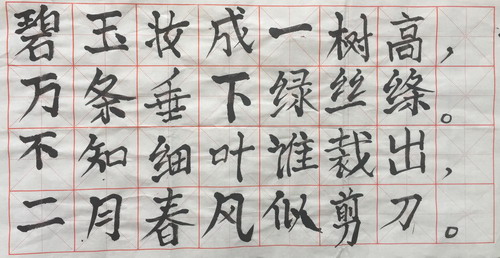 碧玉妆成一树高，
万条垂下绿丝绦。
不知细叶谁裁出，
二月春风似剪刀。